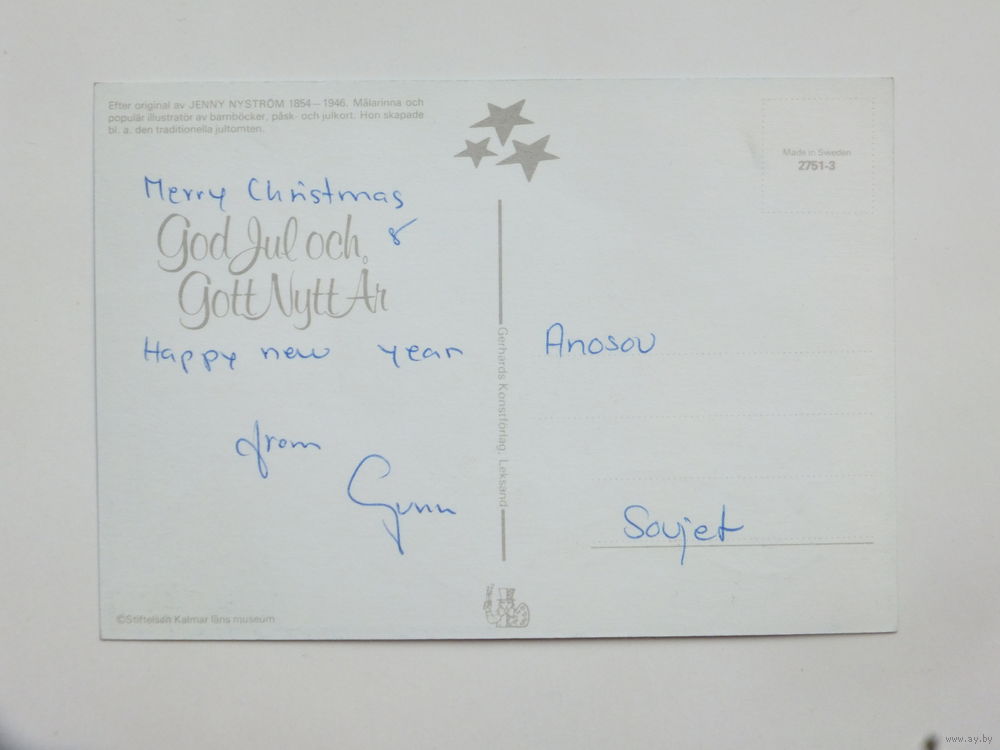 Efter original av JENNY NYSTRÖM 1854–1946. Målarinna och
populär illustratör av barnböcker, påsk- och julkort. Hon skapade
bl. a. den traditionella jultomten.
Merry Christmas
God Jul och
&
Gott Nytt År
Happy new year
from
Gunn
©Stiftelsen Kalmar läns museum
Gerhards Konstförlag, Leksand
Made in Sweden
2751-3
Anosov
Sovjet
www.ay.by